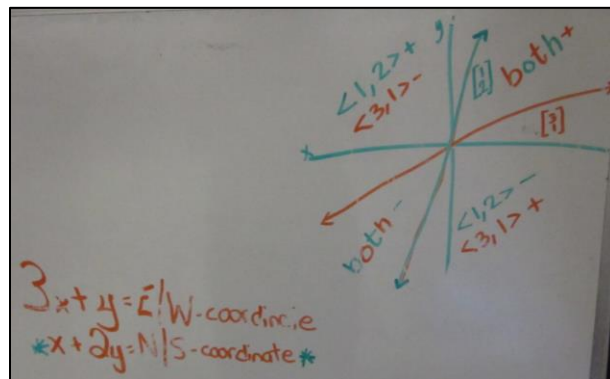 y
<1,2>+
<3,1>-
[1 2]
both+
[3 1]
x
both-
<1,2>-
<3,1>+
3x+y=E/W-coordinate
*x+2y=N/S-coordinate*